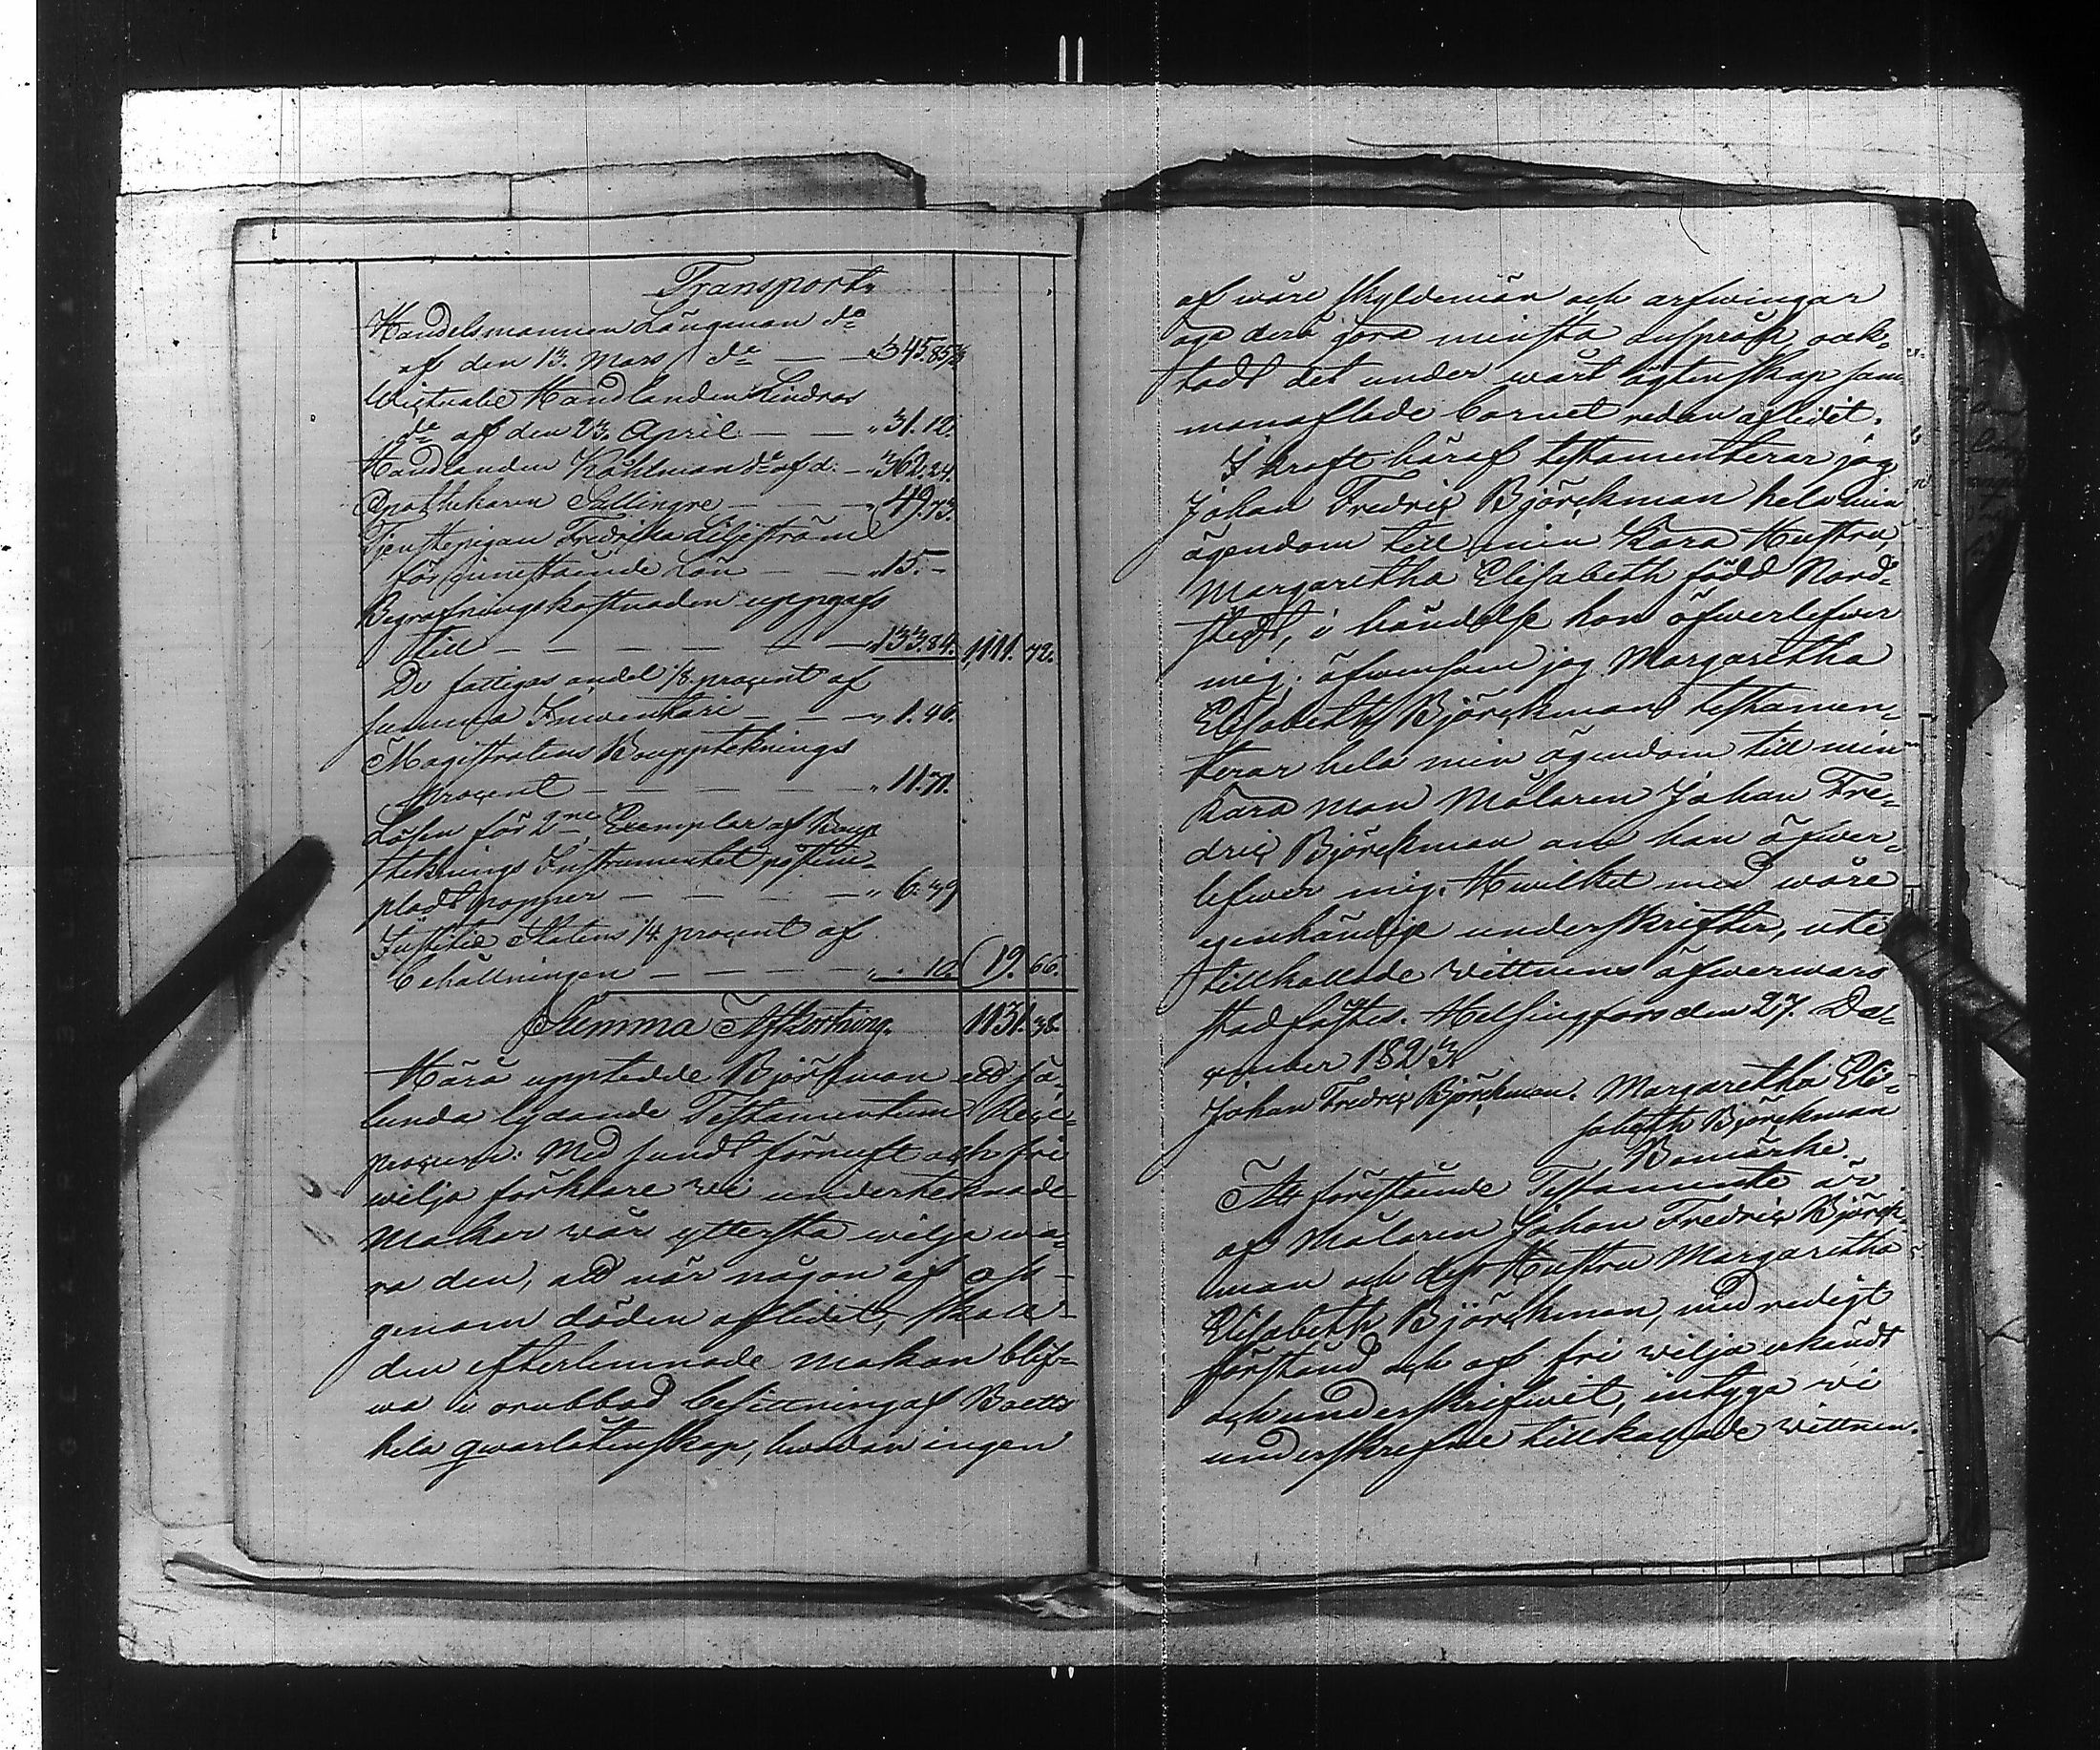 Transport
Handelsmannen Långman do
af den 13. Mars do — — " 345. 85 5/7
Victualie Handlanden Lindros
do aff den 23. April — — " 31. 12.
Handlanden Kåhlman do af d: — " 362. 24.
Apothekaren Sallingre — — — " 49. 73.
Tjenstepigan Fredrika Liljeström
för innestående Lön — — " 15. –
Begrafningskostnaden uppgafs
till — — — — — — " 133. 84. 1111. 72.
De fattigas andel 1/8 procent af
summa Inventarii — — — " 1. 46.
Magistratens Boupptecknings
procent — — — — — " 11. 71.
Lösen för 2ne Exemplar af Boupp
tecknings Instrumentet på stem¬
pladt papper — — — — — " 6. 39
Justitie Statens 1/4 procent af
behållningen — — — — — " . 10. 19. 66.
Summa Afkortning. 1131. 38.
Härå upptedde Björkman ett så¬
lunda lydande Testamentum Reci¬
procum: Med sundt förnuft och fri
wilja förklare wi undertecknade
Makar wår yttersta wilja wa¬
ra den, att när någon af oss
genom döden aflidit, skall
den efterlemnade makan blif¬
wa i orubbad besittning af Boetts
hela qwarlåtenskap, hwadan ingen
af wåre skyldemän och arfwingar
äga derå göra minsta anspråk, oak¬
tadt det under wårt ägtenskap sam¬
manaflade barnet redan aflidit.
I kraft häraf testamenterar jag
Johan Fredric Björckman hela min
ägendom till min Kära Hustru
Margaretha Elisabeth född Nord¬
stedt, i händelse hon öfwerlefwer
mig; äfwensom jag Margaretha
Elisabeth Björckman testamen¬
terar hela min ägendom till min
Kära man Målaren Johan Fre¬
dric Björckman om han öfwer¬
lefwer mig. Hwilket med wåre
egenhändige underskrifter, uti
tillkallade Wittnens öfwerwaro
stadfästes. Helsingfors den 27. Dec¬
ember 1823.
Johan Fredric Björckman. Margaretha Eli¬
sabeth Björckman
Bomärke.
Att föreståënde Testamente är
af Målaren Johan Fredric Björck¬
man och dess Hustru Margaretha
Elisabeth Björckman, med redigt
förstånd och af fri wilja erkändt
och underskrifwit, intyga wi
underskrefne tillkallade wittnen.